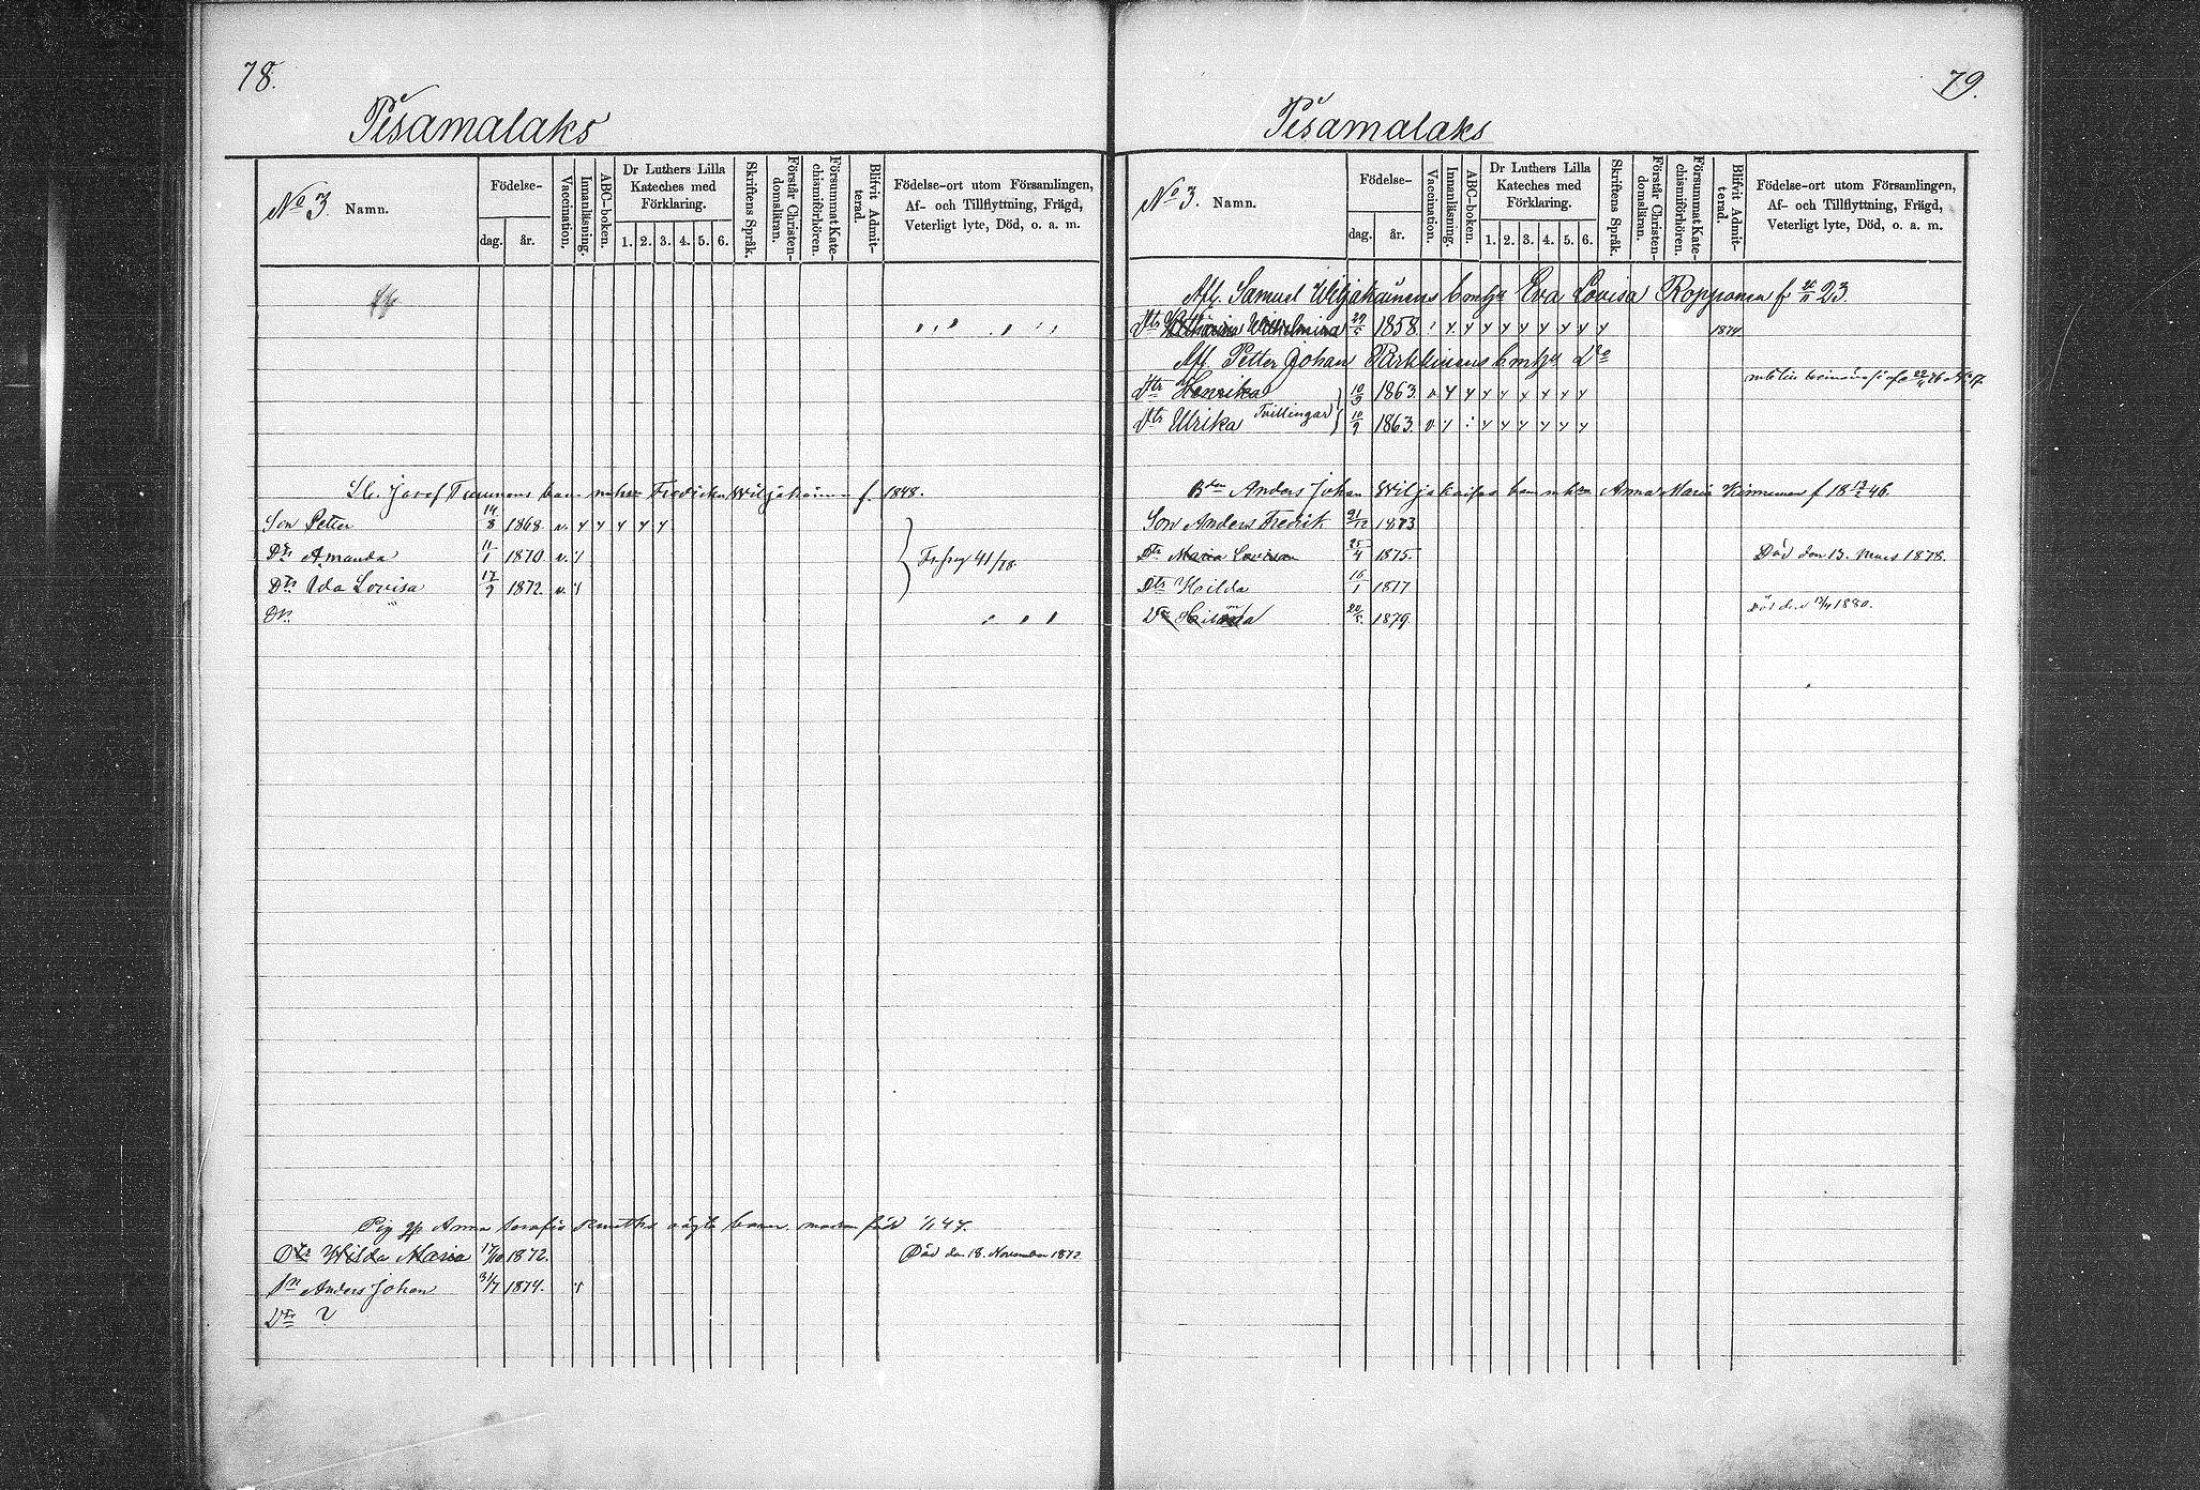 78.
Pesamalaks
No 3. Namn.
Födelse-
dag. år.
Vaccination.
Innanläsning.
ABC-boken.
Dr Luthers Lilla
Kateches med
Förklaring.
1. 2. 3. 4. 5. 6.
Skriftens Språk.
Förstår Christen-
domsläran.
Försummat Kate-
chismiförhören.
Blifvit Admit-
terad.
Födelse-ort utom Församlingen,
Af- och Tillflyttning, Frägd,
Veterligt lyte, Död, o. a. m.
Josef f. 1848.
Son Petter 14/8 1868. v. y y y y y
Dtr Amanda 11/1 1870 v. y
Dtr Ida Lovisa 17/9 1872. v. y
Dtr
Anna född 47.
Dtr Wilda Maria 17/10 1872. Död den 18. November 1872
Sn Anders Johan 31/7 1874. y
Dtr ?
79.
Pesamalaks
No 3. Namn.
Födelse-
dag. år.
Vaccination.
Innanläsning.
ABC-boken.
Dr Luthers Lilla
Kateches med
Förklaring.
1. 2. 3. 4. 5. 6.
Skriftens Språk.
Förstår Christen-
domsläran.
Försummat Kate-
chismiförhören.
Blifvit Admit-
terad.
Födelse-ort utom Församlingen,
Af- och Tillflyttning, Frägd,
Veterligt lyte, Död, o. a. m.
Afl. Samuel Eva Lovisa Ropponen f 23.
Dtr Wilhelmina 1858 y y y y y y y y y 1874
Afl. Petter Johan Parkkinens
Dtr Henrika 10/9 1863. v y y y y y y y
Dtr Ulrika Tvillingar 10/9 1863. v y y y y y y y
Anders Johan Anna Maria Kinnunen f 18 46.
Son Anders Fredrik 21/12 1873
Dtr Maria Lovisa 25/4 1875. Död den 13. Mars 1878.
Dtr Hilda 16/1 1877
Dtr 20/5 1879. 1880.